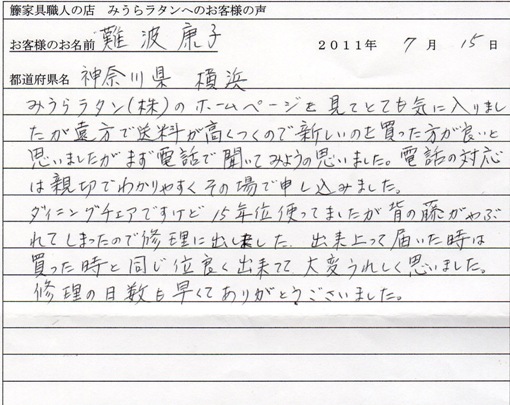 籐家具職人の店 みうらラタンへのお客様の声
お客様のお名前 難波康子 2011年 7月 15日
都道府県名 神奈川県 横浜
みうらラタン(株)のホームページを見てとても気に入りまし
たが遠方で送料が高くつくので新しいのを買った方が良いと
思いましたがまず電話で聞いてみようの思いました。電話の対応
は親切でわかりやすくその場で申し込みました。
ダイニングチェアですけど15年位使ってましたが背の藤がやぶ
れてしまったので修理に出しました。出来上って届いた時は
買った時と同じ位良く出来てて大変うれしく思いました。
修理の日数も早くてありがとうございました。